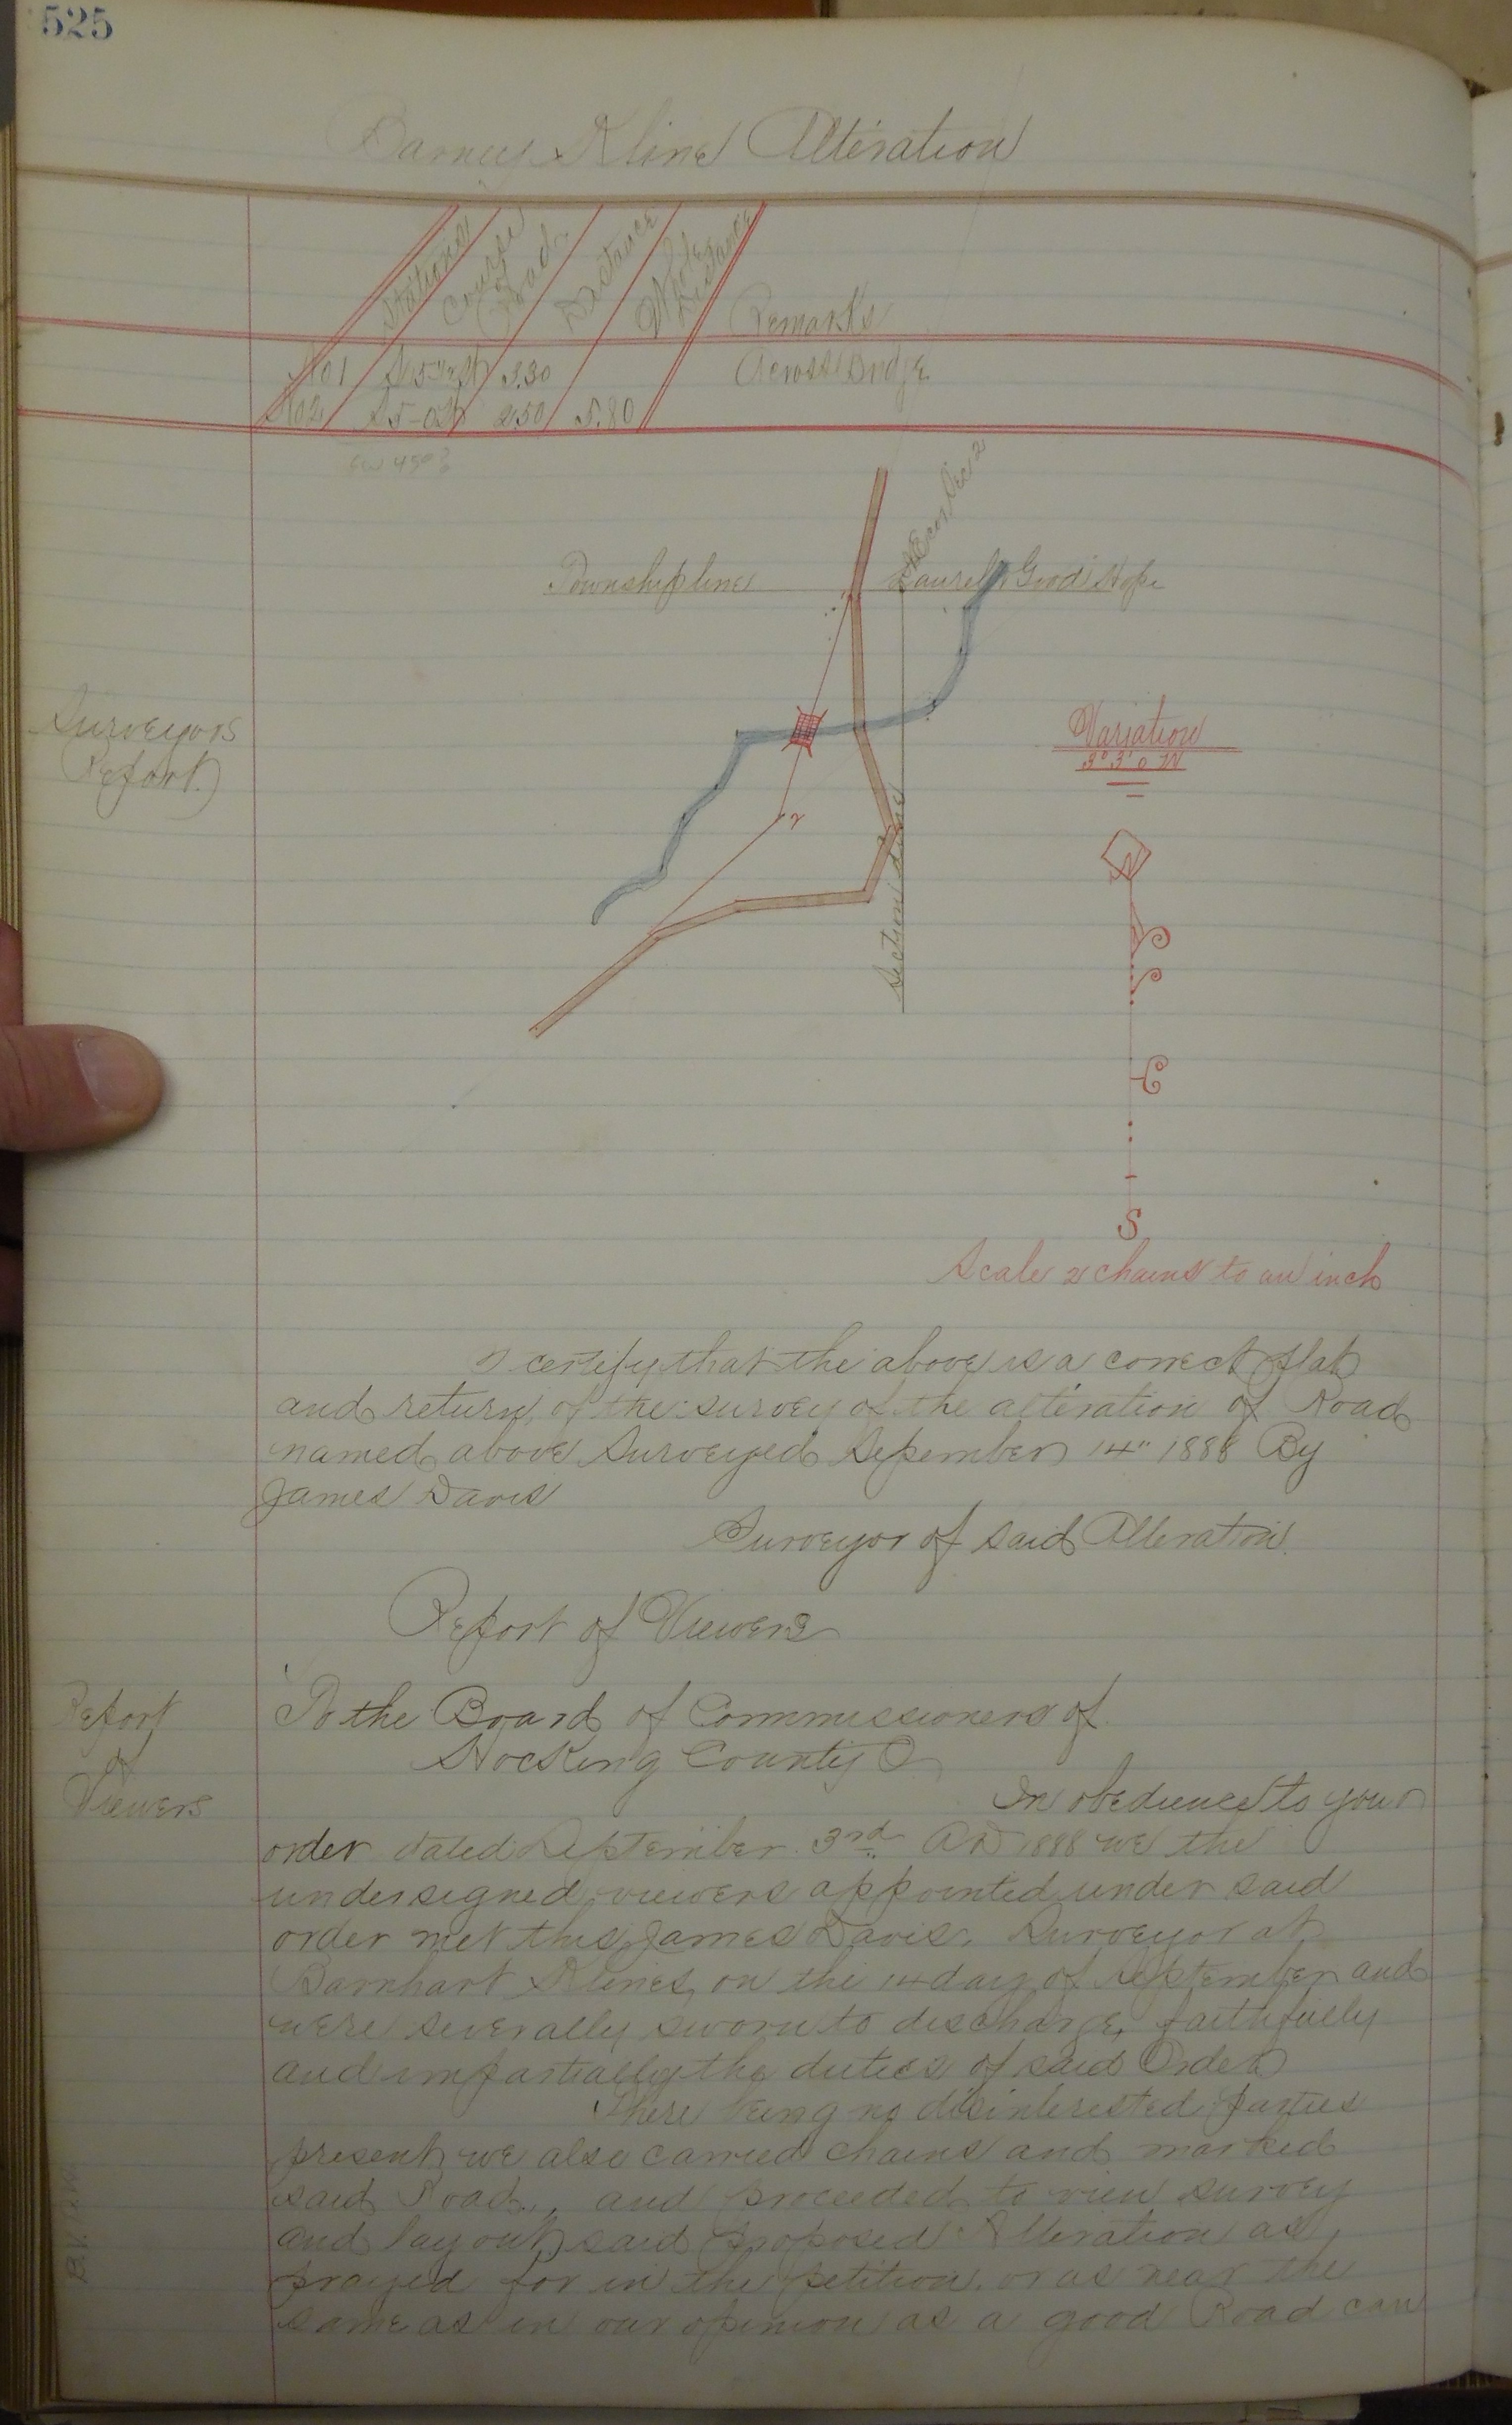 525
Barney Kline Alteration
Stations
Course of Road
Distance
Whole Distance
Remarks
No 1 3.30 Across Bridge
No 2 2.50 5.80
NE cor Sec 2
Township line Laurel & Good Hope
Surveyors
Report.
Variation
3° 3' 0 W
2
Section Line
N
S
Scale 2 chains to an inch
I certify that the above is a correct plat
and return of the survey of the alteration of Road
named above Surveyed Sepember 14" 1888 By
James Davis
Surveyor of said Alteration.
Report of Viewers
Report
of
Viewers
To the Board of Commissioners of
Hocking County O
In obedience to your
order dated September 3rd AD 1888 we the
undersigned viewers appointed under said
order met this James Davis. Surveyor at
Barnhart Klines, on the 14 day of September and
were severally sworn to discharge, faithfully
and impartially the duties of said Order
There being no disinterested parties
present we also carried chains and marked
said Road., and proceeded to view survey
and lay out said proposed Alteration as,
prayed for in the petition. or as near the
same as in our opinion as a good Road can